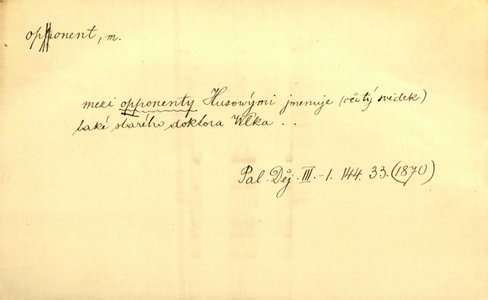 opponent, m.
mezi opponenty Husovými jmenuje (očitý svědek)
také starého doktora Vlka . .
Pal. Děj. III.-1. 144. 33. (1870)